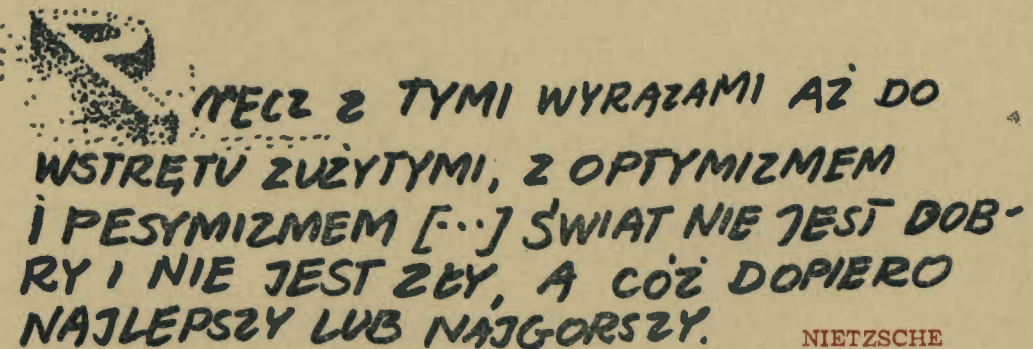 PRECZ Z TYMI WYRAZAMI AŻ DO
WSTRĘTU ZUŻYTYMI, Z OPTYMIZMEM
I PESYMIZMEM [...] ŚWIAT NIE JEST DOB-
RY I NIE JEST ZŁY, A CÓŻ DOPIERO
NAJLEPSZY LUB NAJGORSZY.
NIETZSCHE